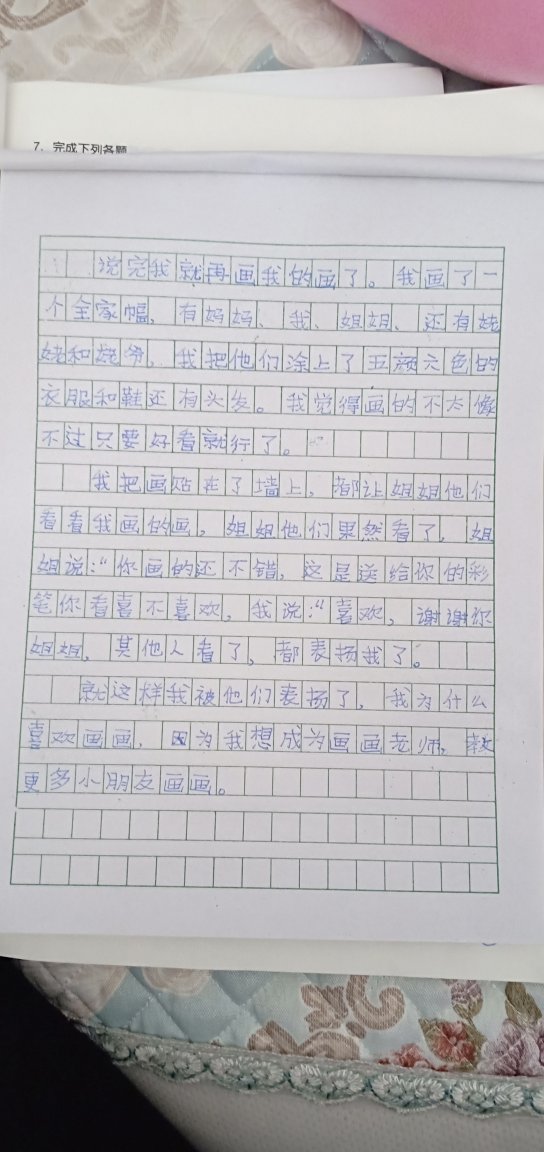 7、完成下列各题
说完我就再画我的画了。我画了一
个全家幅，有妈妈、我、姐姐、还有姥
姥和姥爷，我把他们涂上了五颜六色的
衣服和鞋还有头发。我觉得画的不太像
不过只要好看就行了。
我把画贴在了墙上，都让姐姐他们
看看我画的画，姐姐他们果然看了，姐
姐说：“你画的还不错，这是送给你的彩
笔你看喜不喜欢，我说：“喜欢，谢谢你
姐姐，其他人看了，都表扬我了。
就这样我被他们表扬了，我为什么
喜欢画画，因为我想成为画画老师，教
更多小朋友画画。